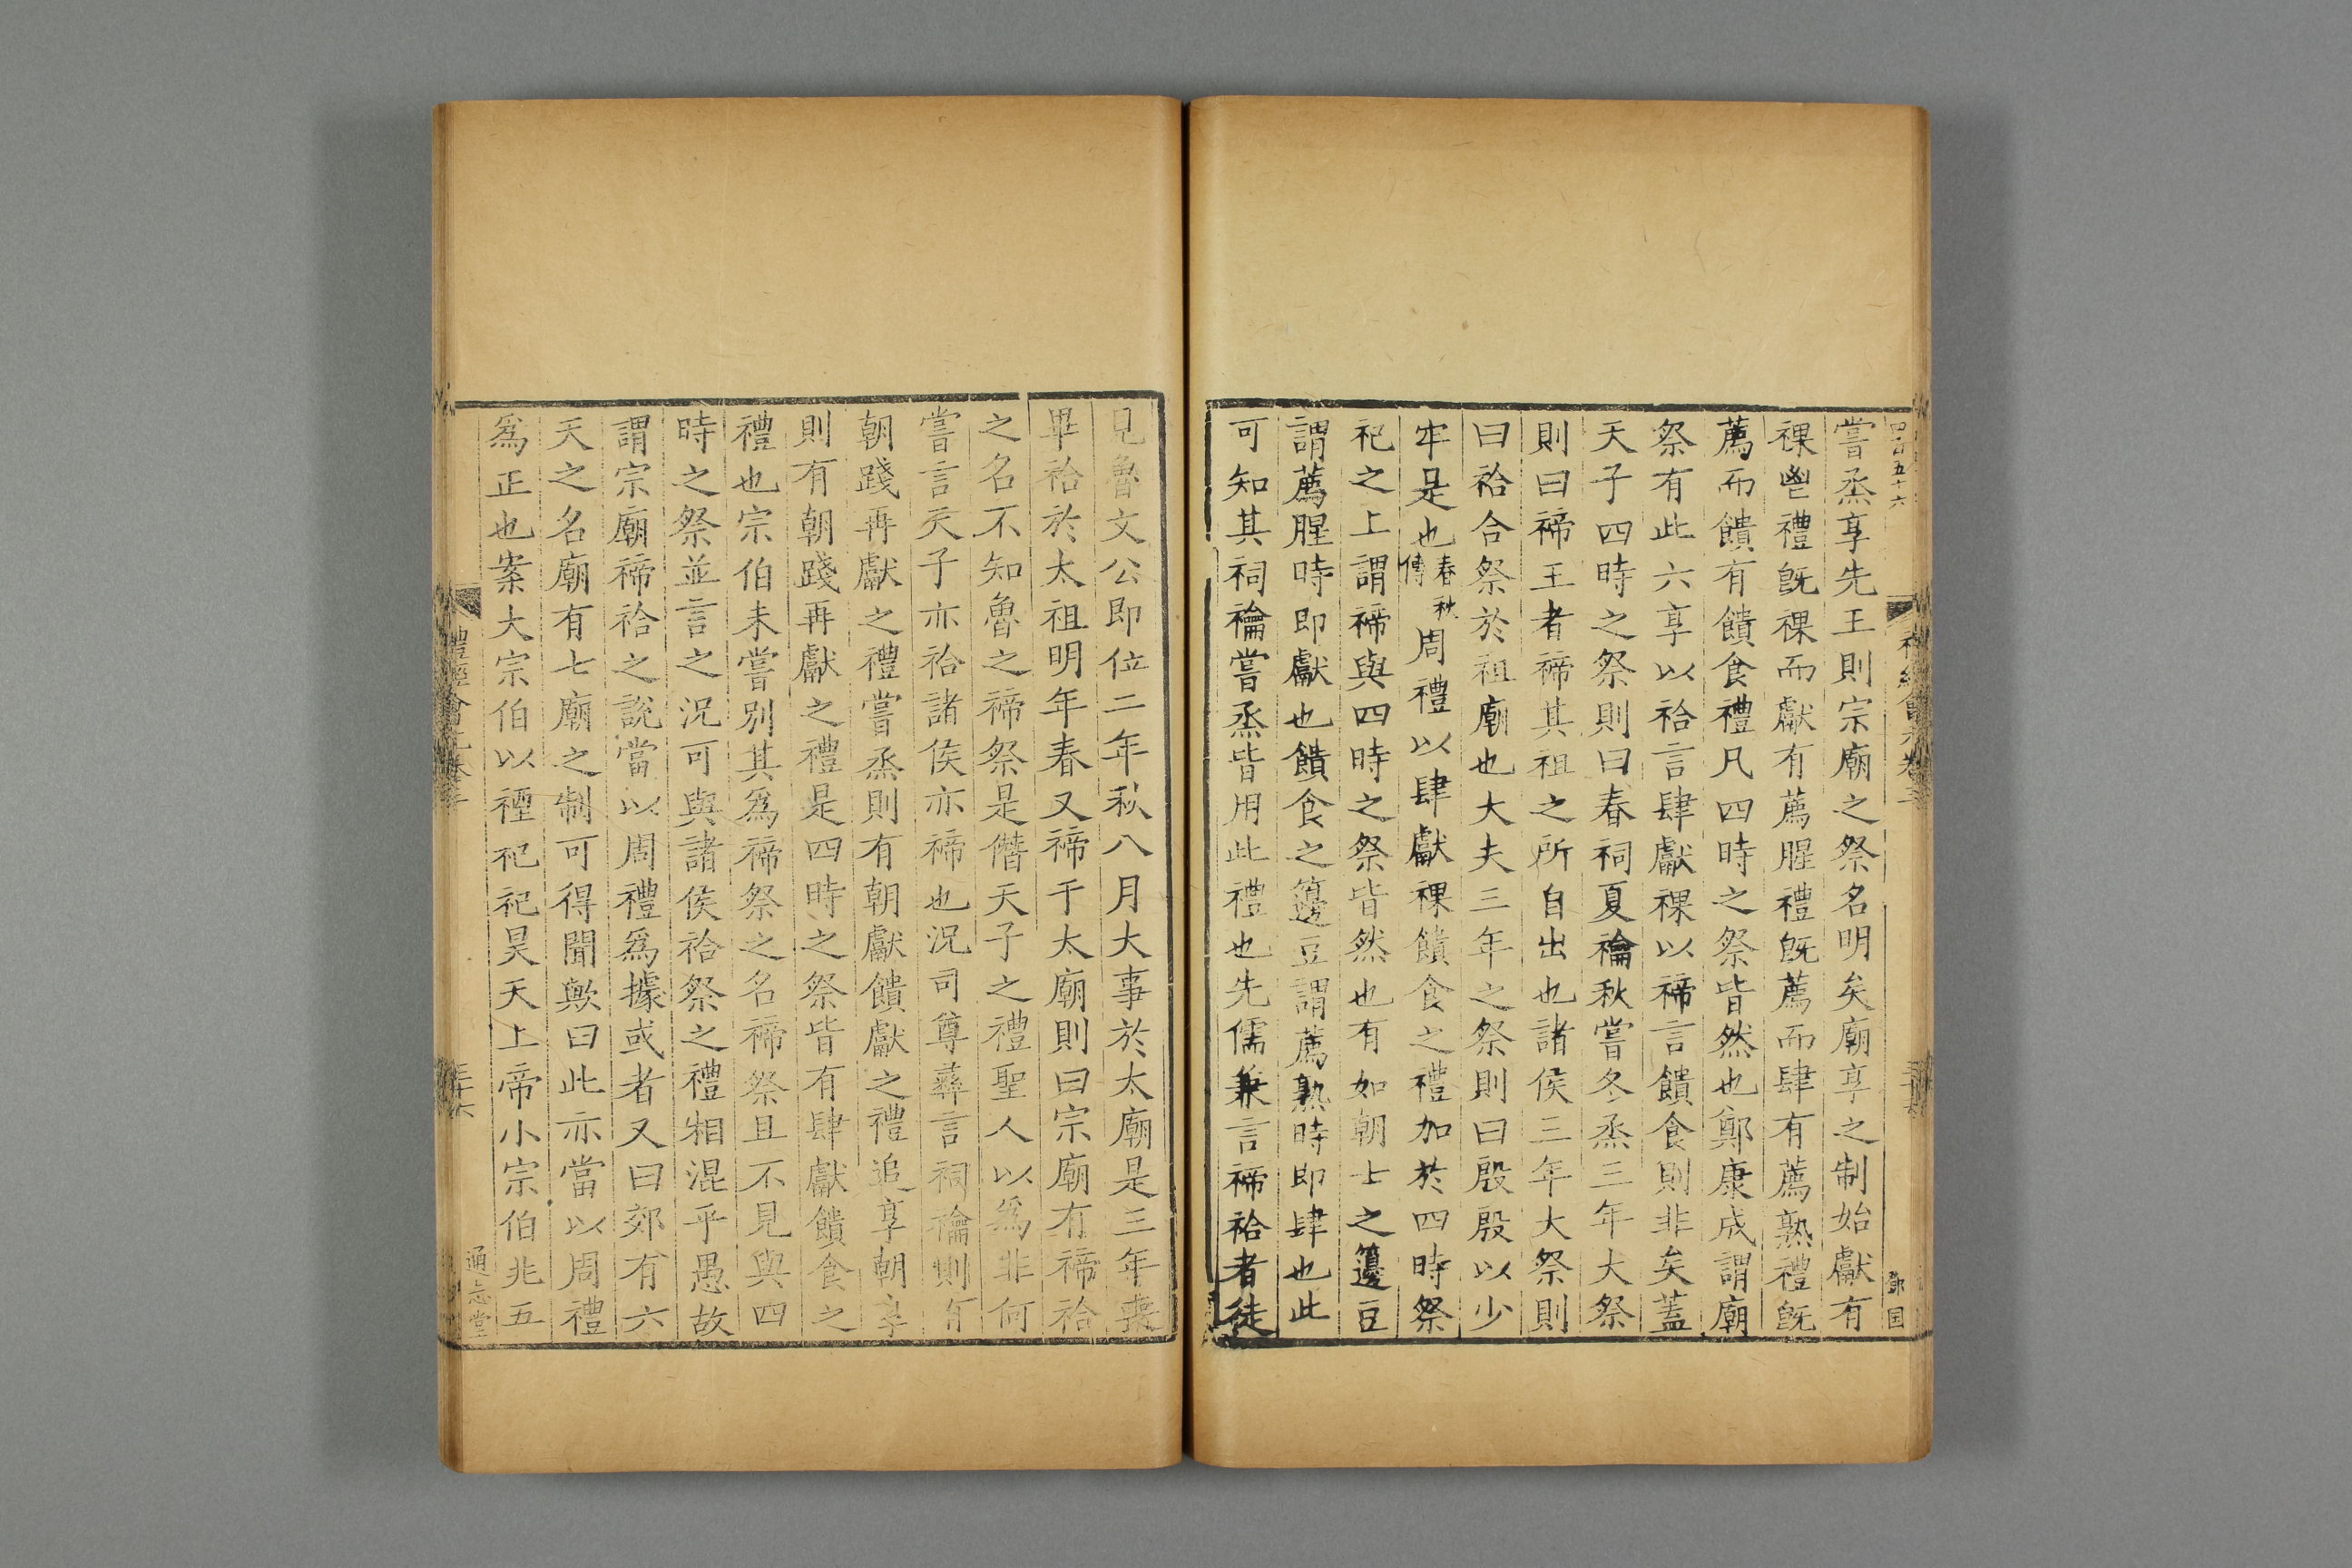 嘗烝享先王則宗廟之祭名明矣廟享之制始獻有
祼鬯禮旣祼而獻有薦腥禮旣薦而肆有薦熟禮旣
薦而饋有饋食禮凡四時之祭皆然也鄭康成謂廟
祭有此六享以祫言肆獻祼以禘言饋食則非矣蓋
天子四時之祭則曰春祠夏禴秋嘗冬烝三年大祭
則曰禘王者禘其祖之所自出也諸侯三年大祭則
曰祫合祭於祖廟也大夫三年之祭則曰殷殷以少
牢是也春秋傳周禮以肆獻祼饋食之禮加於四時祭
祀之上謂禘與四時之祭皆然也有如朝士之籩豆
謂薦腥時即獻也饋食之籩豆謂薦熟時即肆也此
可知其祠禴嘗烝皆用此禮也先儒兼言禘祫者徒
見魯文公即位二年秋八月大事於太廟是三年喪
畢祫於太祖明年春又禘于太廟則曰宗廟有禘祫
之名不知魯之禘祭是僭天子之禮聖人以爲非何
嘗言天子亦祫諸侯亦禘也況司尊彝言祠禴則有
朝踐再獻之禮嘗烝則有朝獻饋獻之禮追享朝享
則有朝踐再獻之禮是四時之祭皆有肆獻饋食之
禮也宗伯未嘗別其爲禘祭之名禘祭且不見與四
時之祭並言之況可與諸侯祫祭之禮相混乎愚故
謂宗廟禘祫之說當以周禮爲據或者又曰郊有六
天之名廟有七廟之制可得聞歟曰此亦當以周禮
爲正也案大宗伯以禋祀祀昊天上帝小宗伯兆五
四百五十六
通志堂